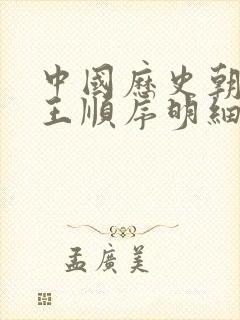 中國歷史朝
王順序明細
孟廣美